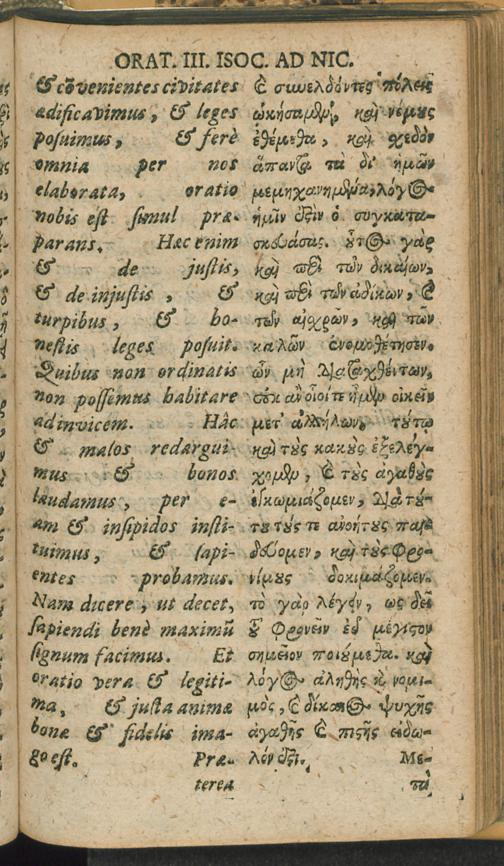 ORAT. III. ISOC. AD NIC.
& cōvenientes civitates
ædificavimus, & leges
posuimus, & ferè
omnia per nos
elaborata, oratio
nobis est simul præ-
parans. Hæc enim
& de justis,
& de injustis, &
turpibus, & ho-
nestis leges posuit.
Quibus non ordinatis
non possemus habitare
adinvicem. Hâc
& malos redargui-
mus & bonos
laudamus, per e-
am & insipidos insti-
tuimus, & sapi-
entes probamus.
Nam dicere, ut decet,
sapiendi benè maximū
signum facimus. Et
oratio vera & legiti-
ma, & justa animæ
bonæ & fidelis ima-
go est. Præ-
terea
καὶ συνελθόντες πόλεις
ᾠκήσαμεν, καὶ νόμους
ἐθέμεθα, καὶ σχεδὸν
ἅπαντα τὰ δι' ἡμῶν
μεμηχανημένα, λόγος
ἡμῖν ἐστὶν ὁ συγκατα-
σκευάσας. οὗτος γὰρ
καὶ περὶ τῶν δικαίων,
καὶ περὶ τῶν ἀδίκων, καὶ
τῶν αἰχρῶν, καὶ τῶν
καλῶν ἐνομοθέτησεν.
ὧν μὴ διαταχθέντων,
οὐκ ἂν οἷοίτε ἦμεν οἰκεῖν
μετ' ἀλλήλων, τούτῳ
καὶ τοὺς κακοὺς ἐξελέγ-
χομεν, καὶ τοὺς ἀγαθοὺς
ἐγκωμιάζομεν, διὰ τού-
του τούς τε ἀνοήτους παι-
δεύομεν, καὶ τοὺς φρο-
νίμους δοκιμάζομεν.
τὸ γὰρ λέγειν, ὡς δεῖ
τοῦ φρονεῖν εὖ μέγιστον
σημεῖον ποιούμεθα. καὶ
λόγος ἀληθὴς καὶ νομι-
μὸς, καὶ δίκαιος ψυχῆς
ἀγαθῆς καὶ πιστῆς εἰδω-
λόν ἐστι. Με-
τὰ